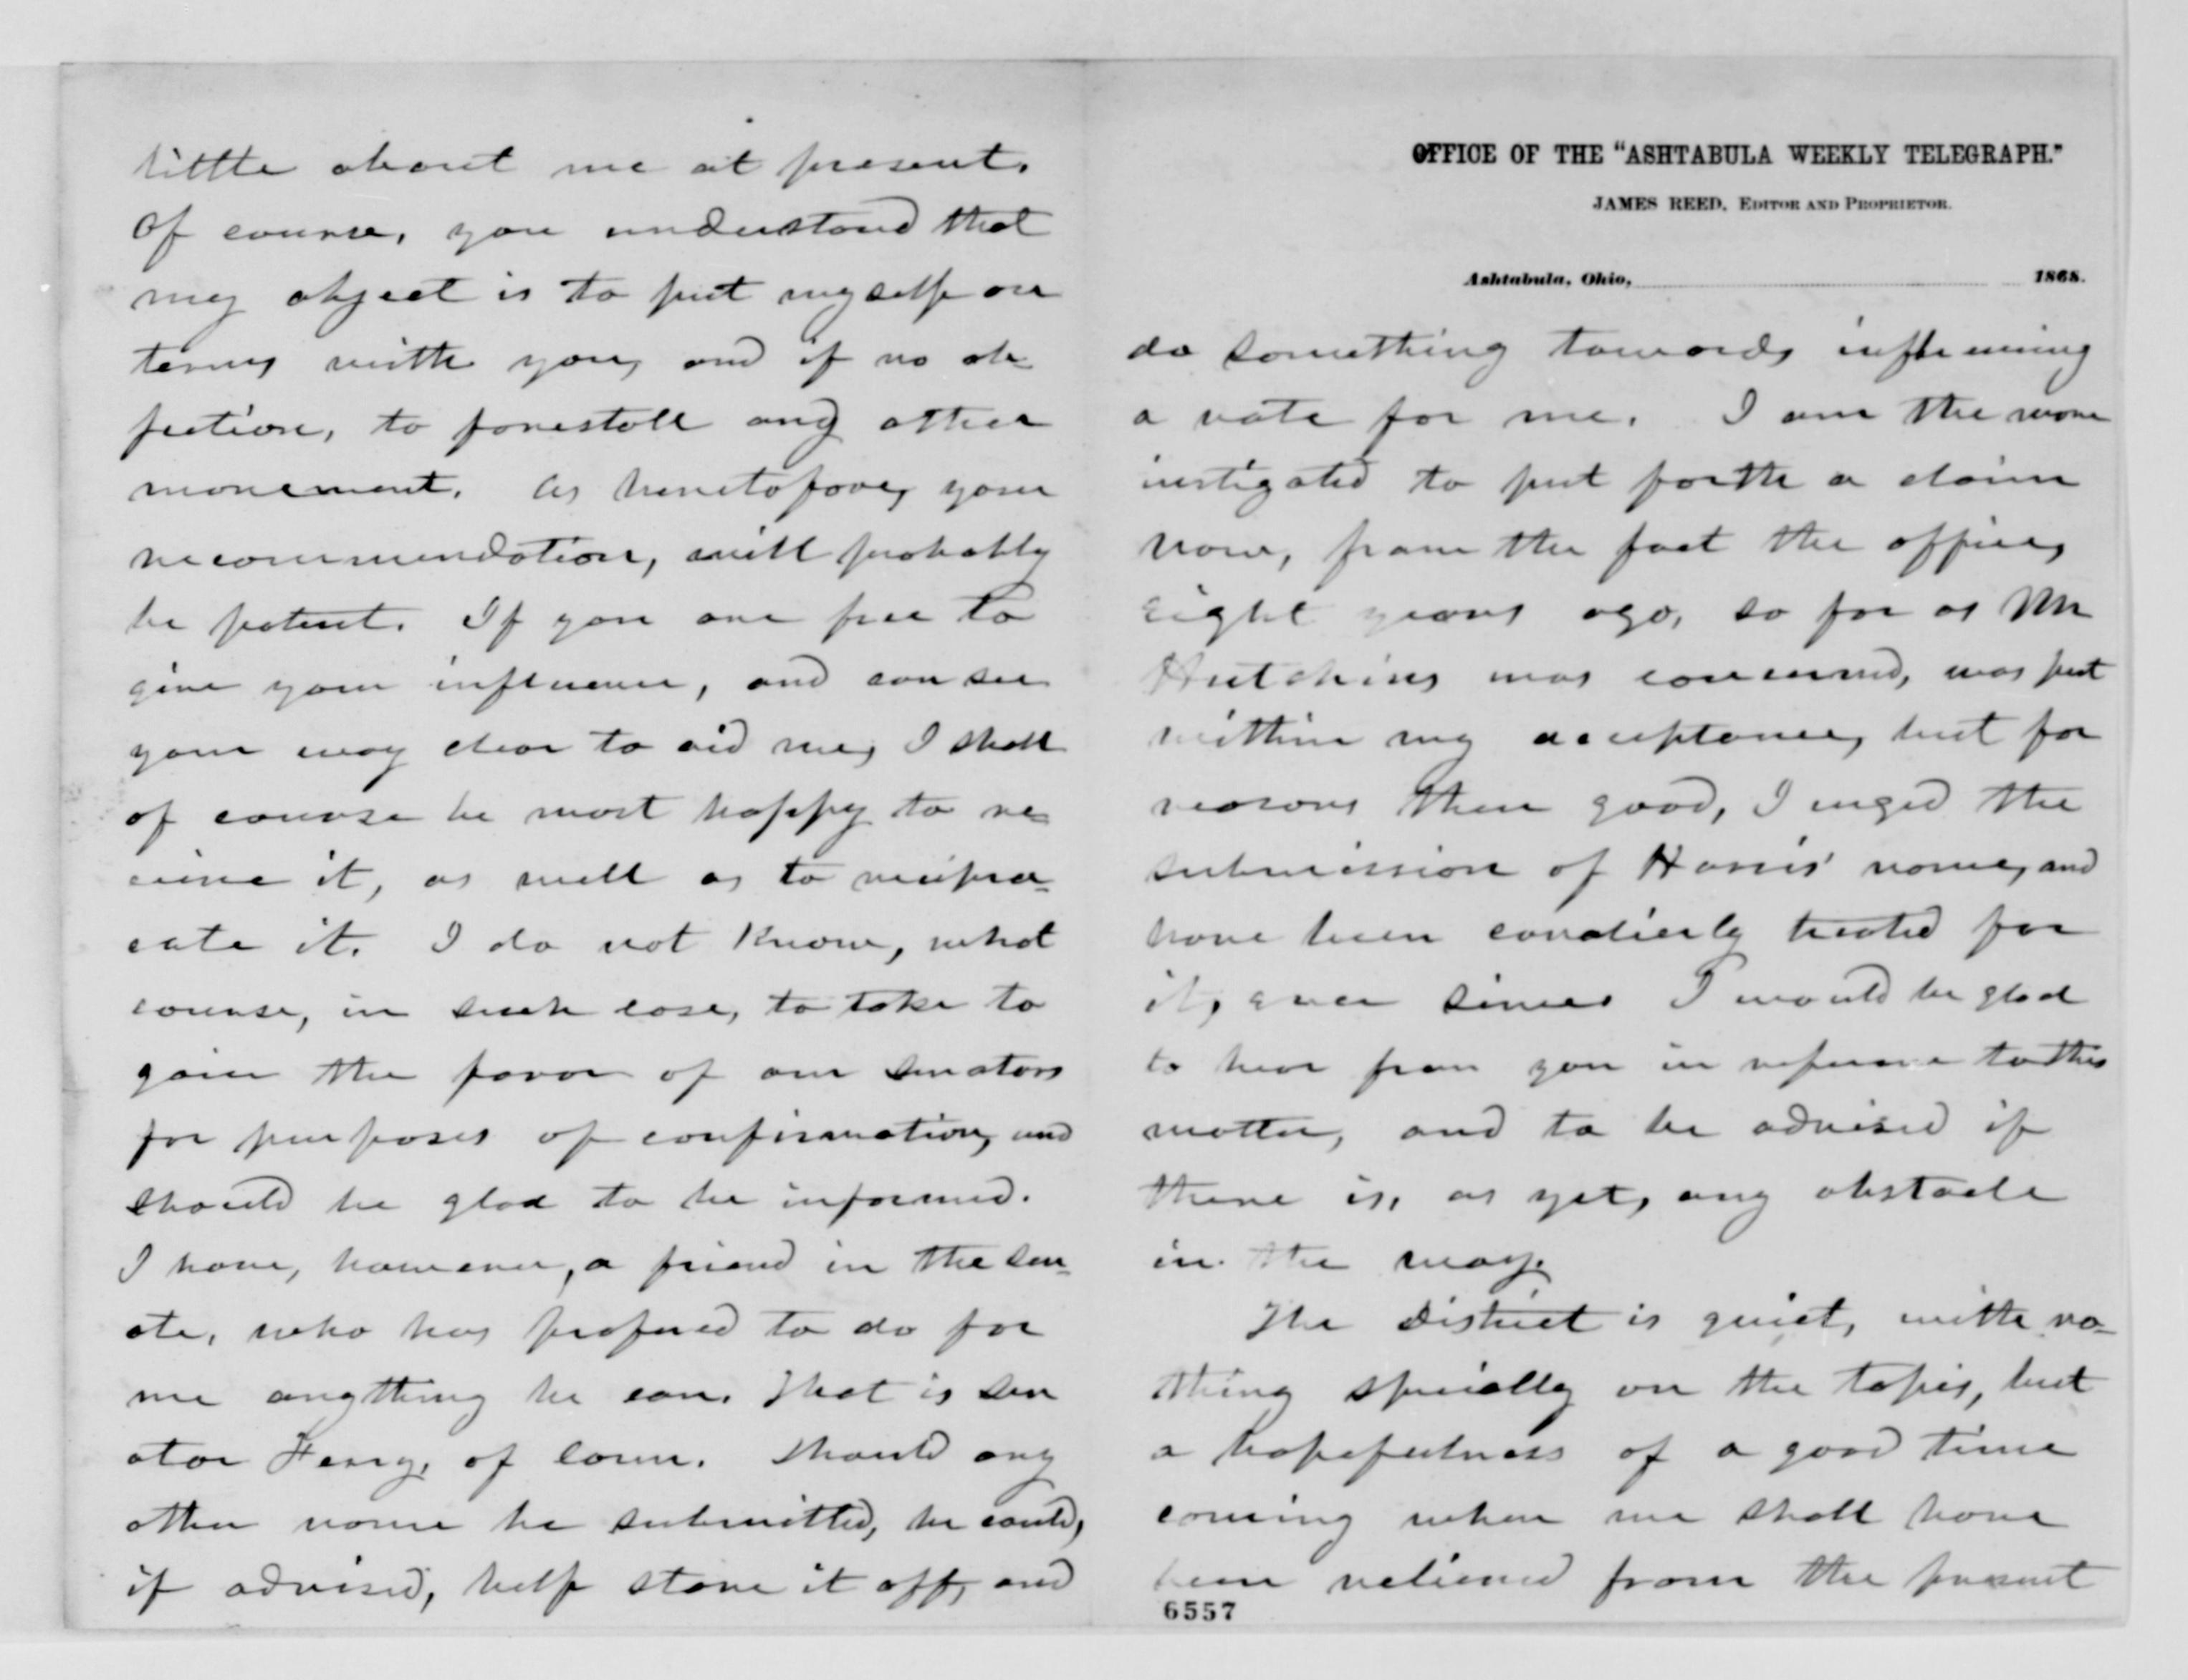 little about me at present.
Of course, you understand that
my object is to put myself on
terms with you, and if no ob-
jection, to forestall any other
movement. As heretofore, your
recommendation, will probably
be potent. If you are free to
give your influence, and can see
your way clear to aid me, I shall
of course be most happy to re-
ceive it, as well as to recipro-
cate it. I do not know, what
course, in such case, to take to
gain the favor of our Senators
for purposes of confirmation, and
should be glad to be informed.
I have, however, a friend in the Sen-
ate, who has profered to do for
me anything he can. That is Sen
ator Ferry, of Conn. Should any
other name be submitted, he could,
if advised, help stave it off, and
OFFICE OF THE "ASHTABULA WEEKLY TELEGRAPH."
JAMES REED, EDITOR AND PROPRIETOR.
Ashtabula, Ohio, 1868.
do something towards influencing
a vote for me. I am the more
instigated to put forth a claim
now, from the fact the office,
eight years ago, so far as Mr
Hutchins was concerned, was put
within my acceptance, but for
reasons then good, I urged the
submission of Harris' name, and
have been cavalierly treated for
it, ever since. I would be glad
to hear from you in reference to this
matter, and to be advised if
there is, as yet, any obstacle
in the way.
The District is quiet, with no-
thing specially on the tapis, but
a hopefulness of a good time
coming when we shall have
been relieved from the present
6557